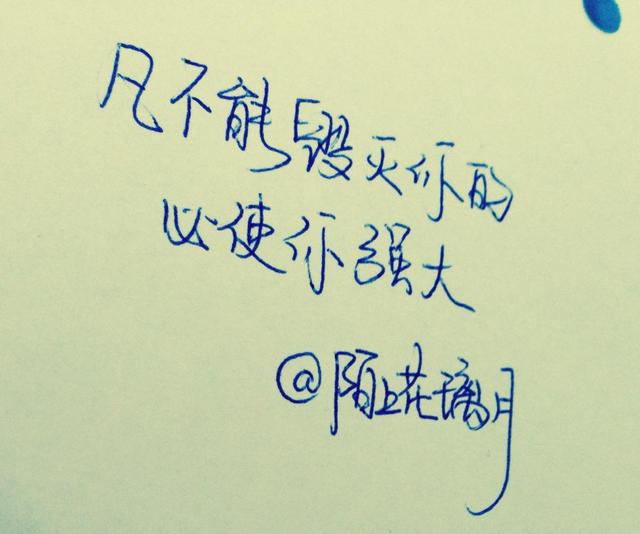 凡不能毁灭你的
必使你强大
@陌上花璃月